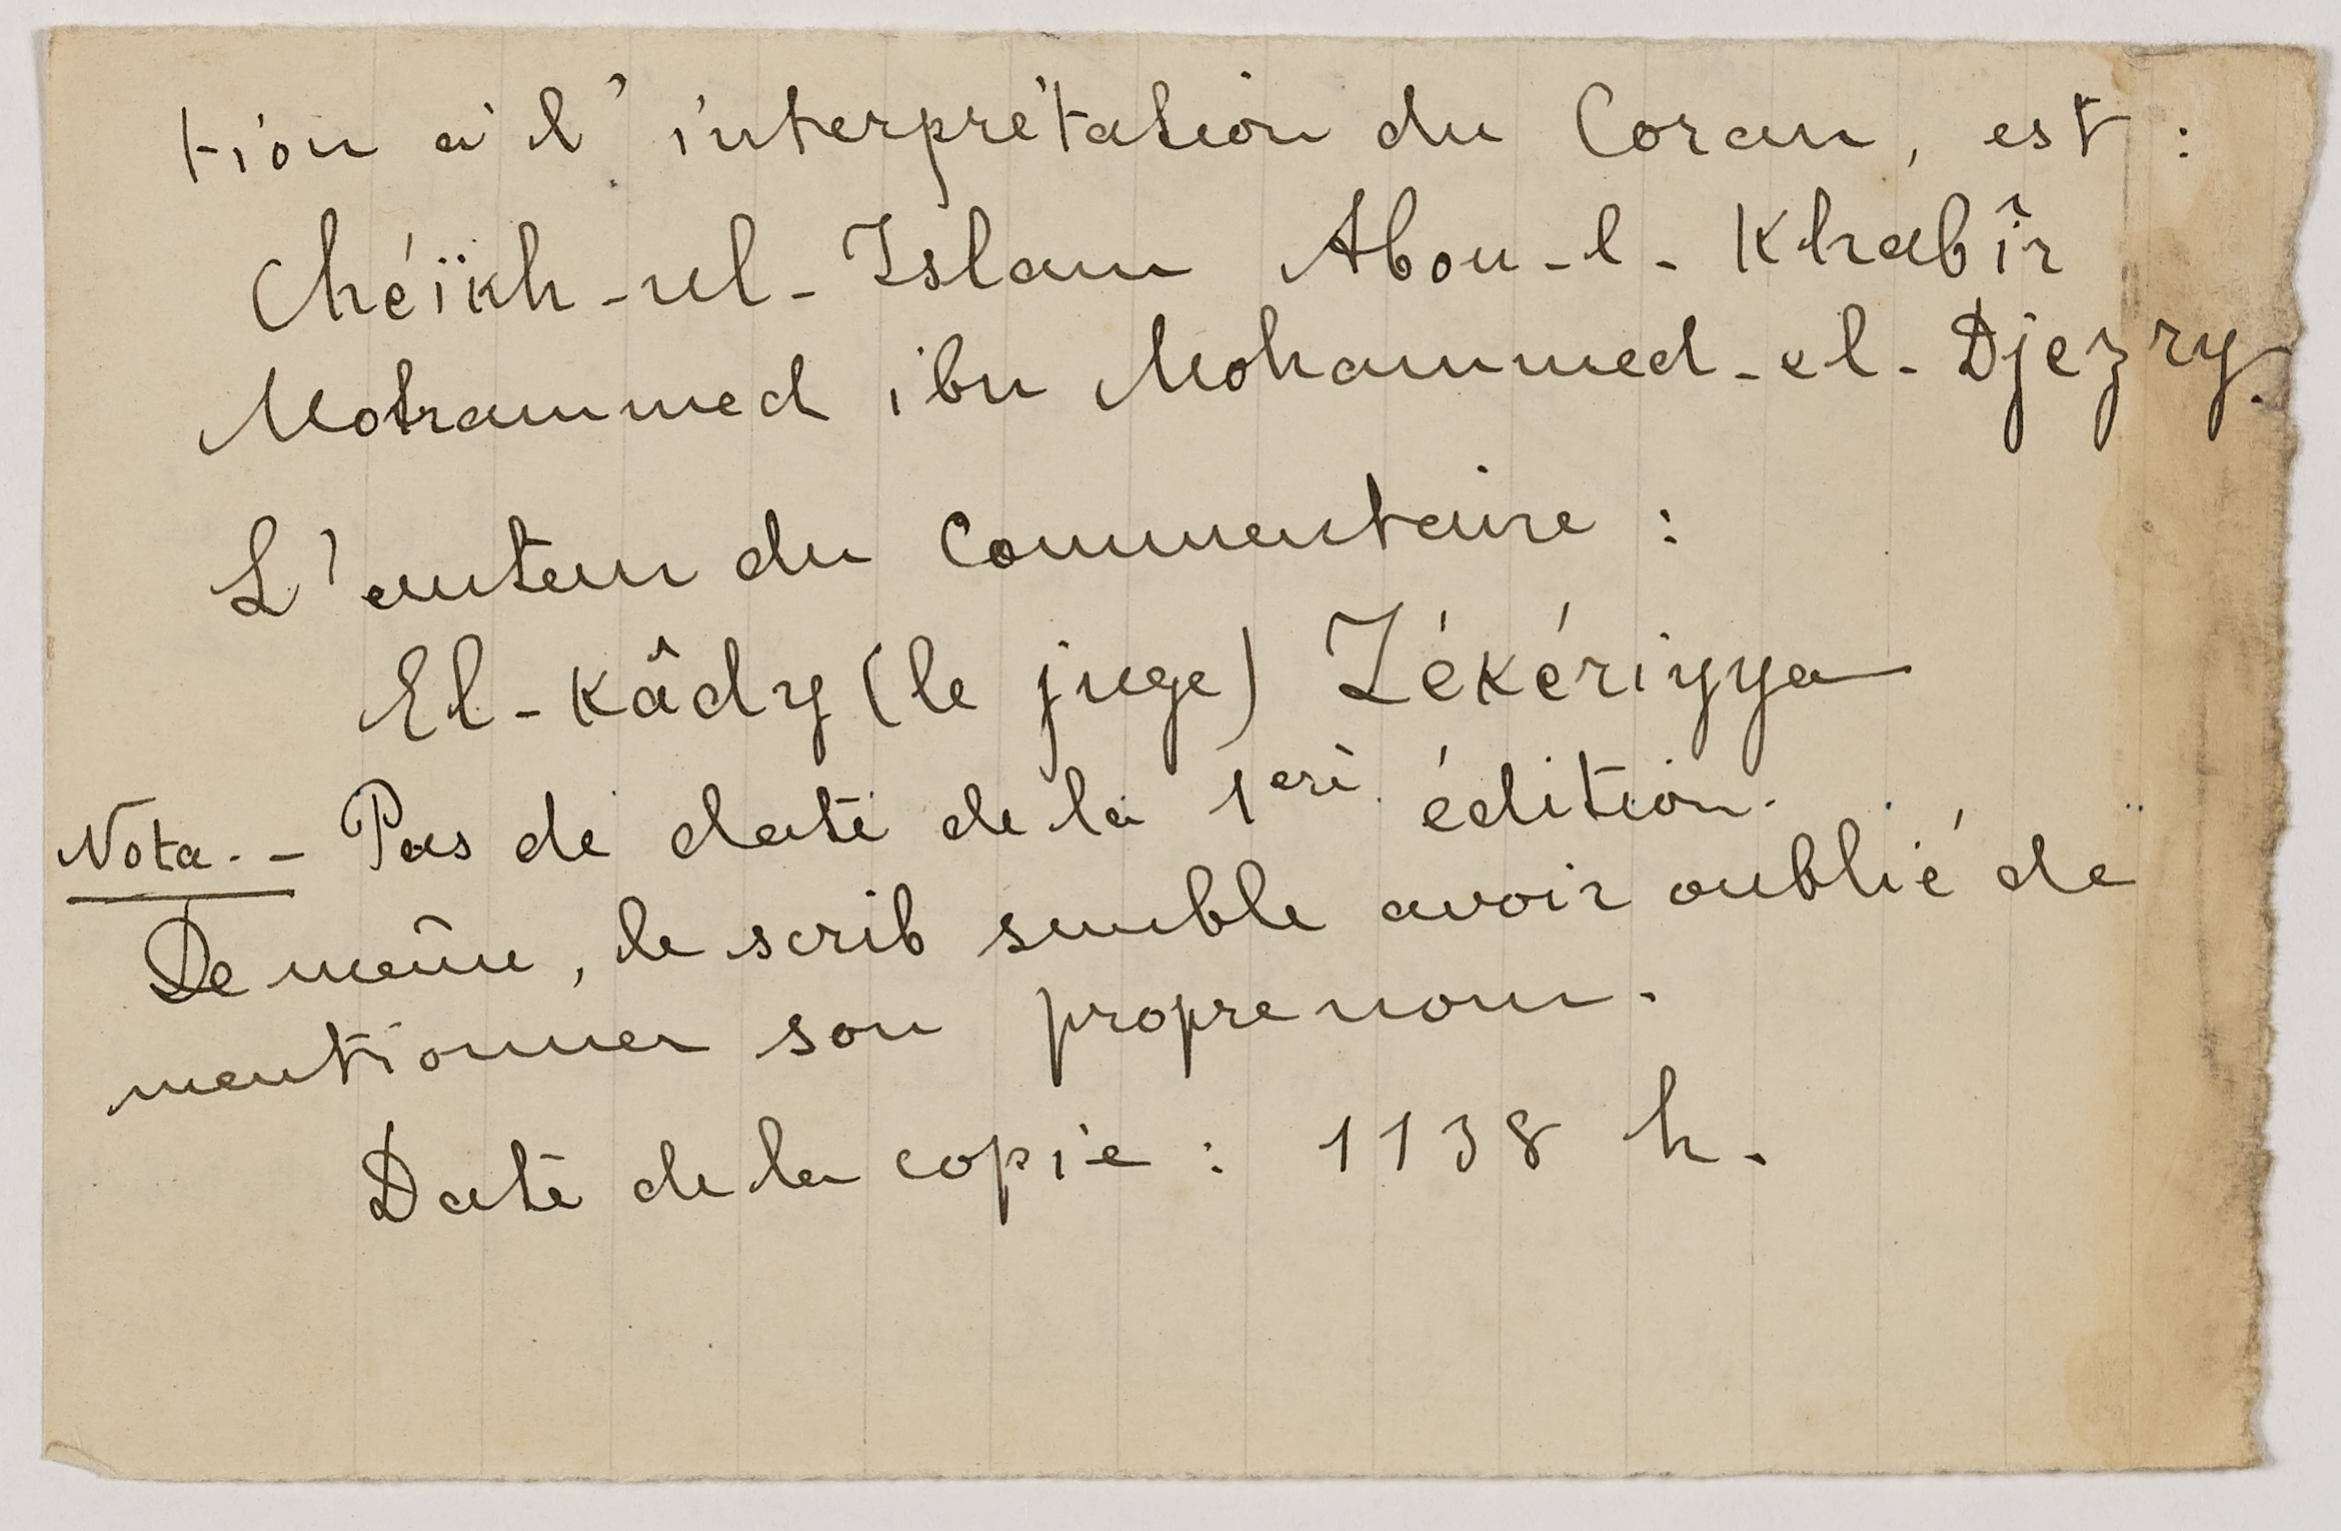 tion à l'interprétation du Coran, est :
Chéïkh-ul-Islam Abou-l-Khabîr
Mohammed ibn Mohammed-el-Djezry.
L'auteur du Commentaire :
El-Kâdy (le juge) Zékériyya
Nota. - Pas de date de la 1ere édition.
De même, le scrib semble avoir oublié de
mentionner son propre nom.
Date de la copie : 1138 h.